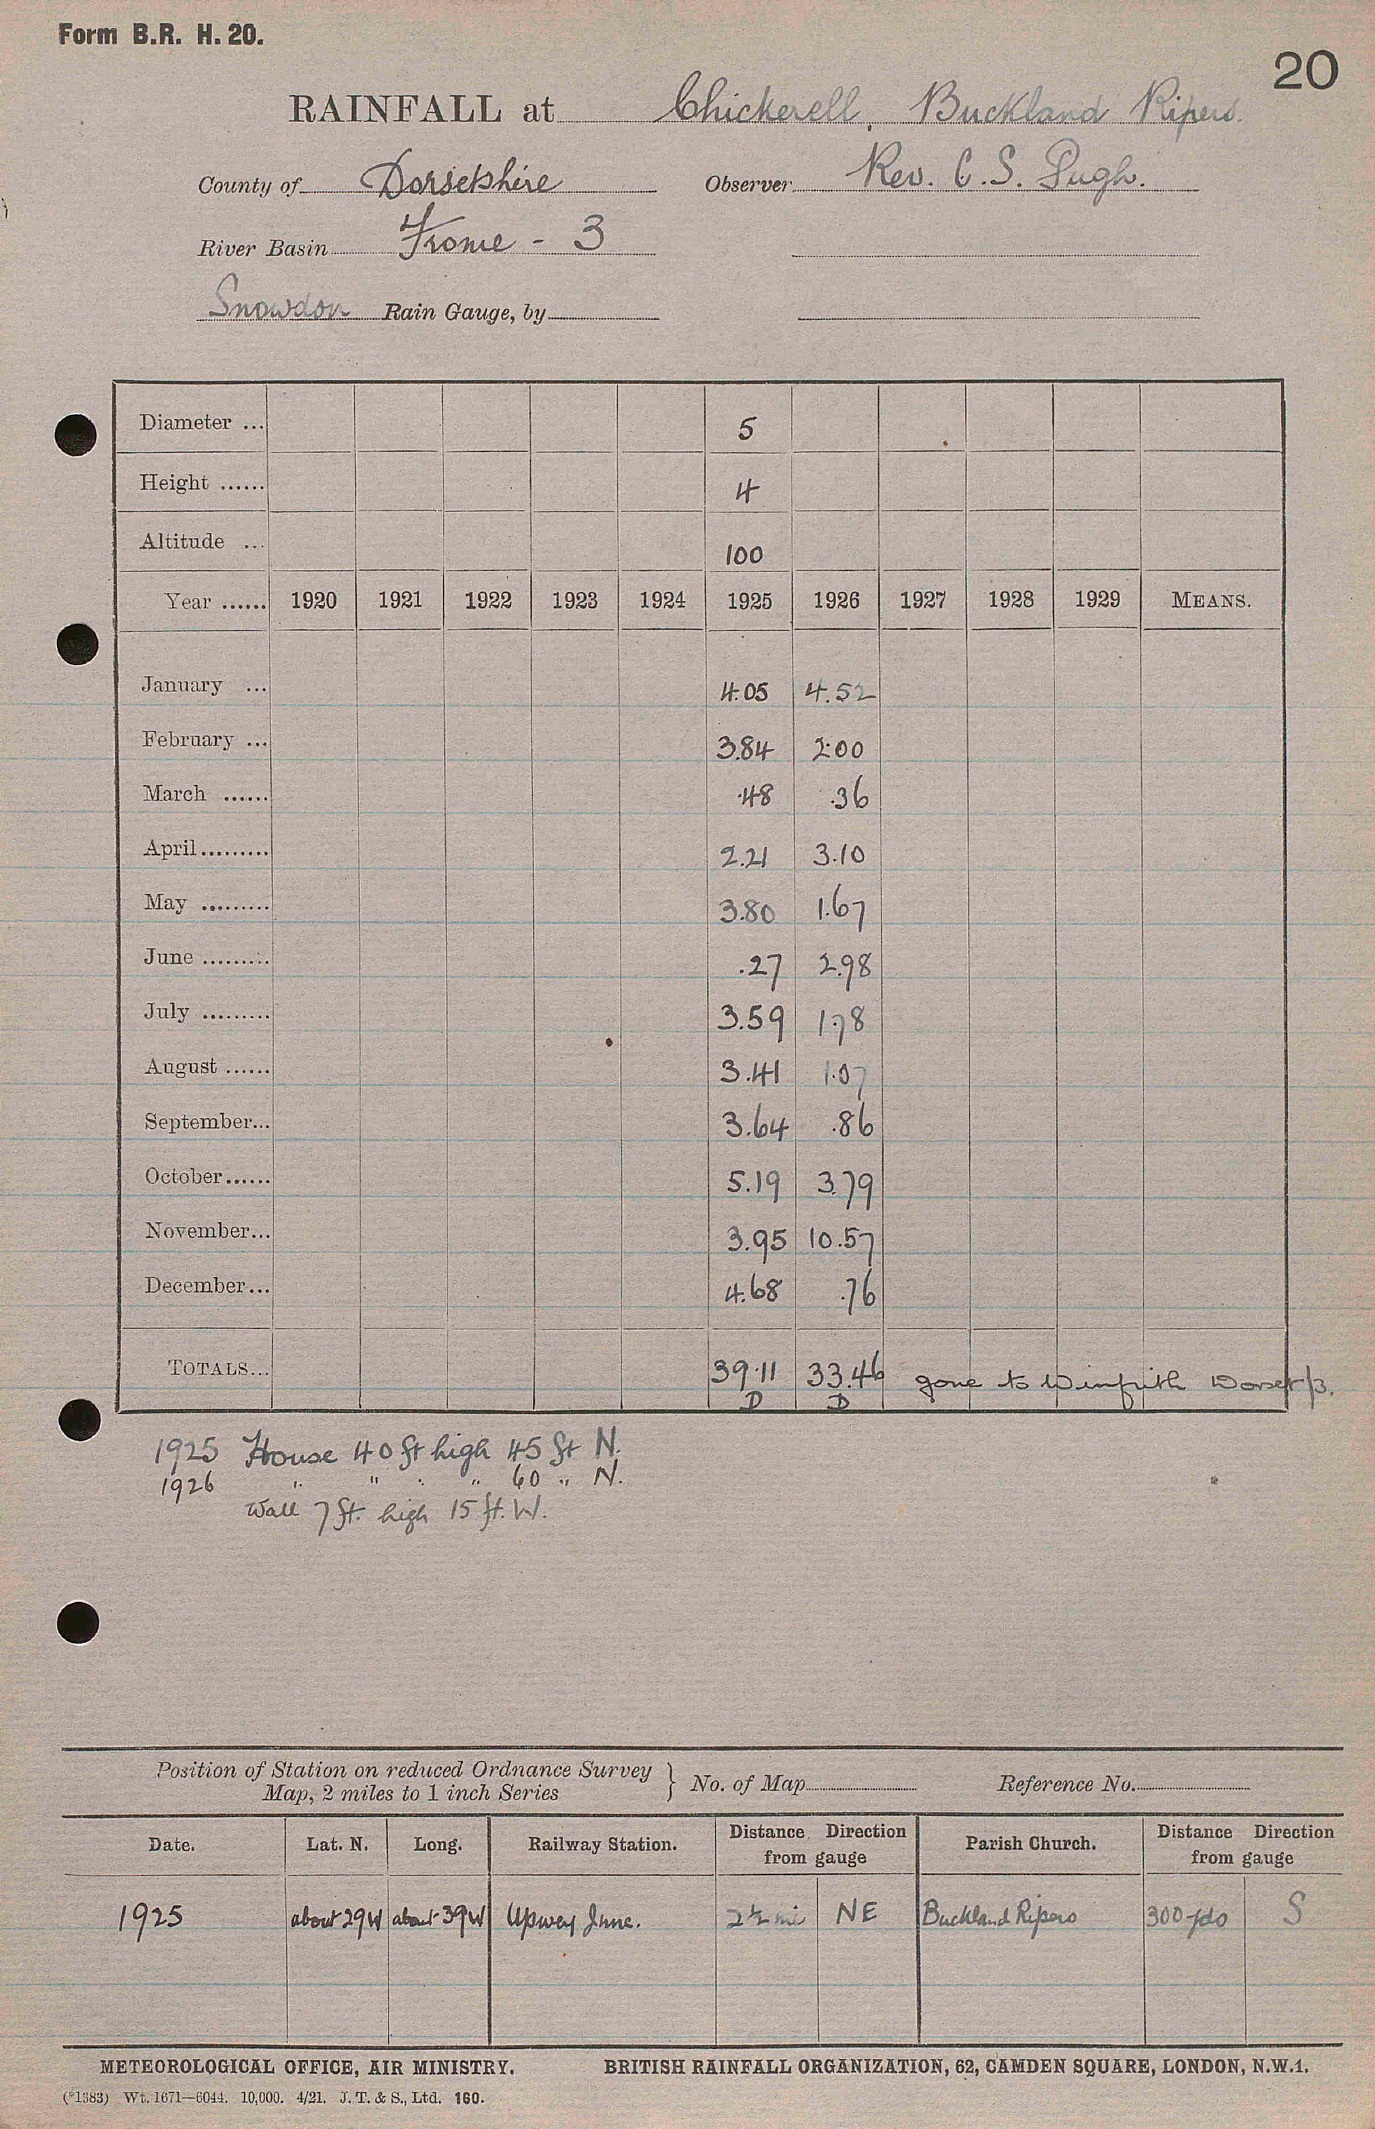 Form B.R. H. 20.
20
RAINFALL at Chickerell, Buckland Ripers.
County of Dorsetshire Observer Rev. C. S. Pugh.
River Basin Frome - 3
Snowdon Rain Gauge, by
Diameter ... 5
Height ...... 4
Altitude ... 100
Year ...... 1920 1921 1922 1923 1924 1925 1926 1927 1928 1929 MEANS.
January ... 4.05 4.52
February ... 3.84 2.00
March ...... .48 .36
April ......... 2.21 3.10
May ......... 3.80 1.67
June ......... .27 2.98
July ......... 3.59 1.78
August ...... 3.41 1.07
September... 3.64 .86
October...... 5.19 3.79
November... 3.95 10.57
December... 4.68 .76
TOTALS... 39.11 33.46 gone to Winfrith Dorset/3.
D D
1925 House 40 ft high 45 ft N.
1926 " " " " 60 " N.
Wall 7 ft. high 15 ft. W.
Position of Station on reduced Ordnance Survey
Map, 2 miles to 1 inch Series } No. of Map Reference No.
Date. Lat. N. Long. Railway Station. Distance Direction from gauge Parish Church. Distance Direction from gauge
1925 about 29W about 39W Upwey Junc. 2½ mi NE Buckland Ripers 300 yds S
METEOROLOGICAL OFFICE, AIR MINISTRY. BRITISH RAINFALL ORGANIZATION, 62, CAMDEN SQUARE, LONDON, N.W.1.
(*1383) Wt. 1671—6044. 10,000. 4/21. J. T. & S., Ltd. 160.